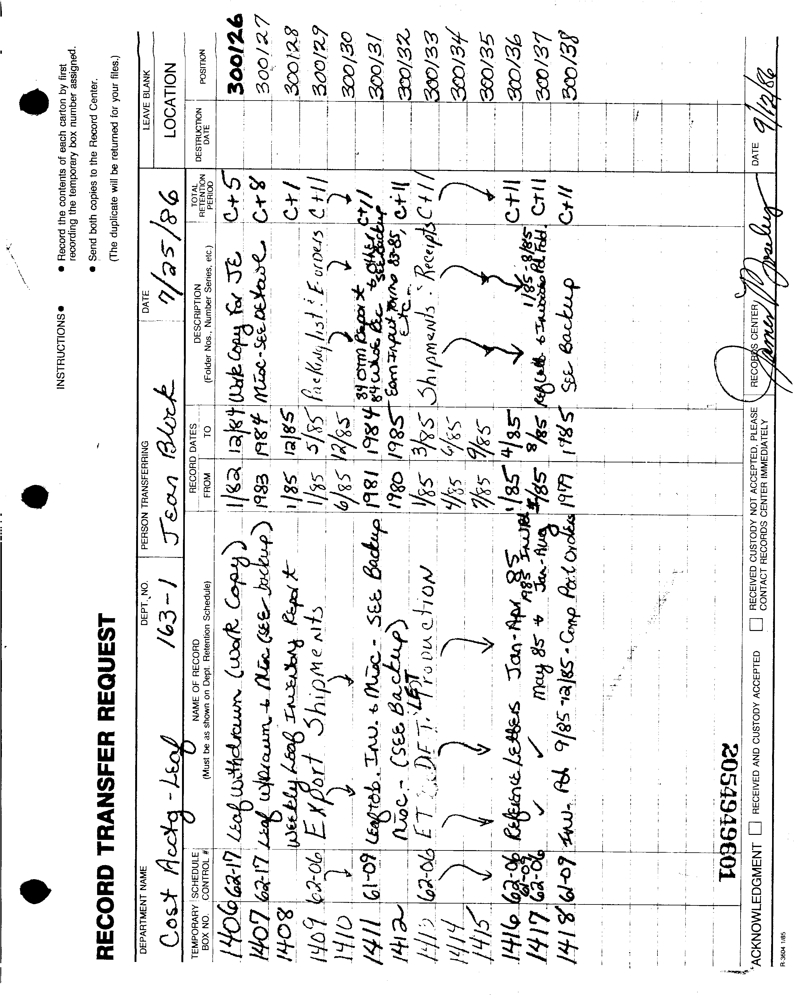 RECORD TRANSFER REQUEST
INSTRUCTIONS •
• Record the contents of each carton by first recording the temporary box number assigned.
• Send both copies to the Record Center.
(The duplicate will be returned for your files.)
DEPARTMENT NAME DEPT. NO. PERSON TRANSFERRING DATE LEAVE BLANK
Cost Acctg - Leaf 163-1 Jean Block 7/25/86 LOCATION
TEMPORARY BOX NO. SCHEDULE CONTROL # NAME OF RECORD (Must be as shown on Dept. Retention Schedule) RECORD DATES FROM TO DESCRIPTION (Folder Nos., Number Series, etc.) TOTAL RETENTION PERIOD DESTRUCTION DATE POSITION
1406 62-17 Leaf Withdrawn (Work Copy) 1/82 12/84 Work Copy For JE C+5 300126
1407 62-17 Leaf W/Drawn & Misc (SEE backup) 1983 1984 Misc-SEE C+8 300127
1408 Weekly Leaf Inventory Report 1/85 12/85 C+1 300128
1409 62-06 Export Shipments 1/85 5/85 Packing list & Eorders C+11 300129
1410 6/85 12/85 300130
1411 61-09 Leaf tob. Inv. & Misc - SEE Backup 1981 1984 84 Report 84 Whse Rec & other SEE Backup C+11 300131
1412 Misc - (SEE Backup) 1980 1985 Input 83-85, Etc. C+11 300132
1413 62-06 PRODUCTION 1/85 3/85 Shipments - Receipts C+11 300133
1414 4/85 6/85 300134
1415 7/85 9/85 300135
1416 62-06 Reference Letters Jan-Apr 85 1/85 4/85 C+11 300136
1417 61-09 62-06 ✓ ✓ May 85 & 1985 Jan-Aug 8/85 1/85-8/85 C+11 300137
1418 61-09 Inv- 9/85-12/85 - Comp Orders 1979 1985 SEE Backup C+11 300138
2054949601
ACKNOWLEDGMENT RECEIVED AND CUSTODY ACCEPTED RECEIVED CUSTODY NOT ACCEPTED, PLEASE CONTACT RECORDS CENTER IMMEDIATELY RECORDS CENTER James Mosley DATE 9/12/86
R-3604 1/85